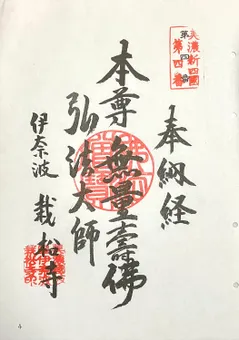 奉納経
美濃新四国
第四番
本尊 無量壽佛
弘法大師
伊奈波 栽松寺